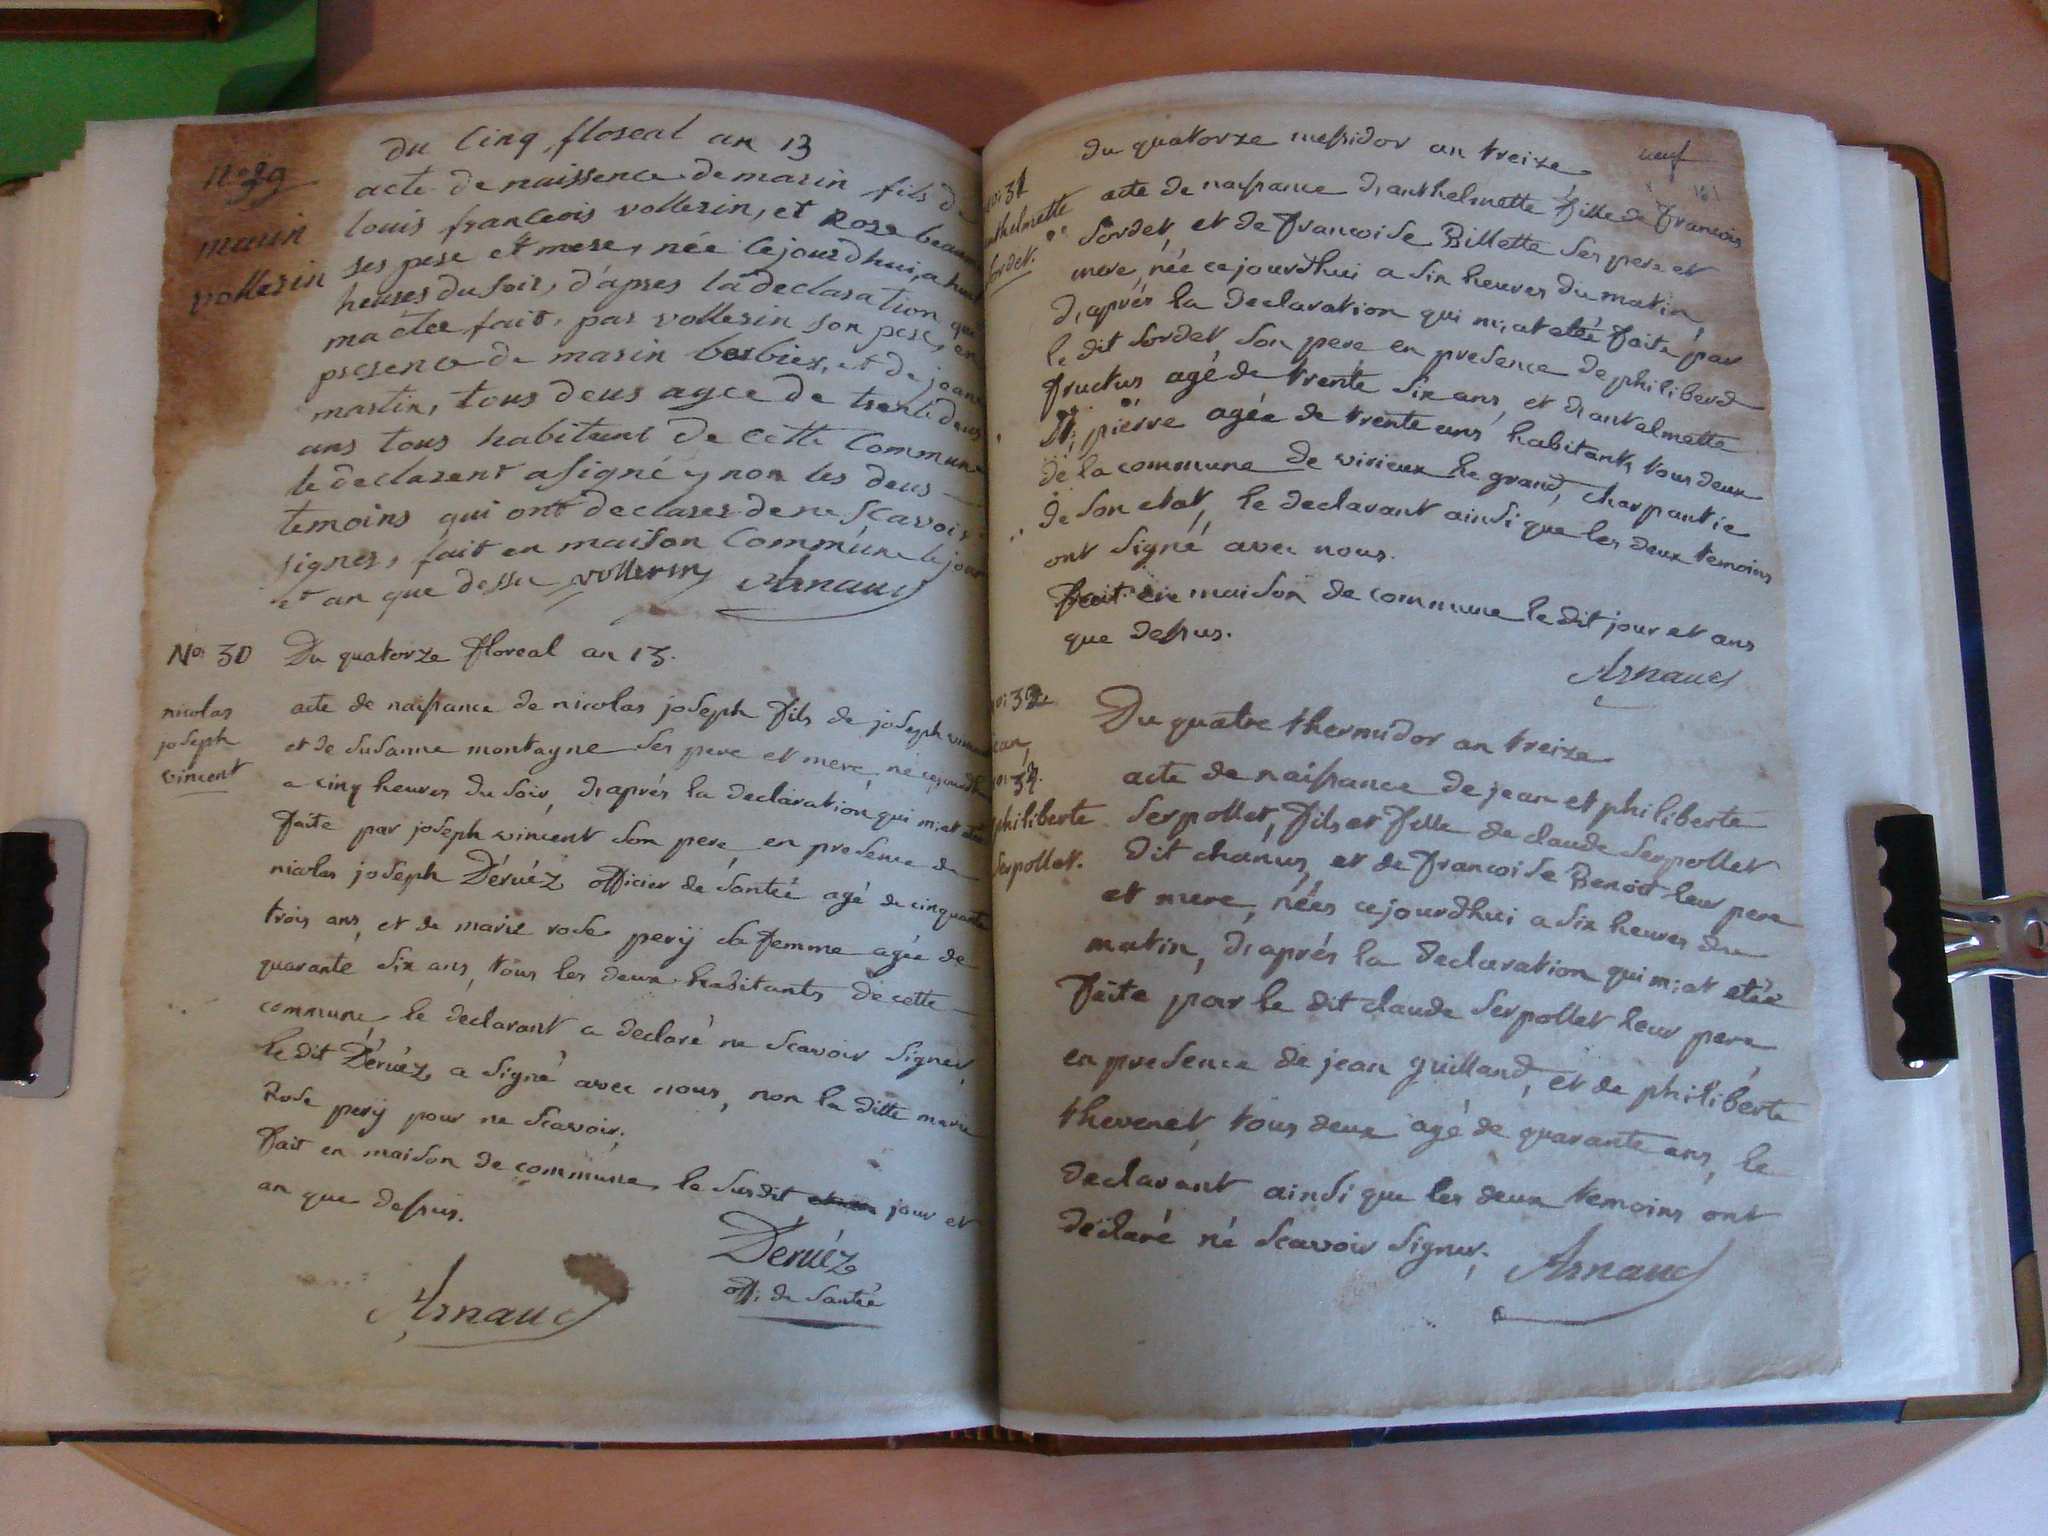 du Cinq, floreal an 13
N.o 29
marin
vollerin
acte de naissence de marin fils de
louis franceois vollerin, et Rose
ses pere et mere, née Cejourdhui, a huit
heures du soir, d'apres la declaration qui
ma étee fait, par vollerin son pere, en
presence de marin berbier, et de jeane
martin, tous deus agee de trente deus
ans tous habitent de Cette Commune
le declarent a signé, non les deus
temoins qui ont declarer de ne scavoir
signer, fait en maison Commune le jour
et an que dessu vollerin Arnaud
No. 30 Du quatorze floreal an 13.
nicolas
joseph
vincent
acte de naissance de nicolas joseph fils de joseph vincent
et de susanne montagne ses pere et mere, né cejourdh
a cinq heures du soir, d'aprés la declaration qui m'et eteé
faite par joseph vincent son pere en presence de
nicolas joseph Déruéz officier de santeé agé de cinquante
trois ans, et de marie rose perij sa femme ageé de
quarante six ans, tous les deux habitants de cette
commune, le declarant a declaré ne scavoir signer,
le dit Déruéz a signé avec nous, non la ditte marie
Rose perij pour ne scavoir;
fait en maison de commune, le susdit jour et
an que dessus.
Deruéz
off: de santeé
Arnaud
neuf
du quatorze messidor an treize
31
anthelmette
Sordet.
acte de naissance d'anthelmette fille de francois
Sordet, et de francoise Billette ses pere et
mere, née cejourdhui a six heures du matin,
d'aprés la declaration qui m'et eteé faite par
le dit sordet son pere en presence de philiberd
fructus agé de trente six ans, et d'antelmette
D, pierre ageé de trente ans, habitants tous deux
de la commune de virieux le grand, charpantie
de son etat, le declarant ainsi que les deux temoins
ont signé avec nous.
fait en maison de commune le dit jour et ans
que dessus.
Arnaud
32
Du quatre thermidor an treize
jean,
philiberte
Serpollet.
acte de naissance de jean et philiberte
Serpollet, fils et fille de claude Serpollet
dit chanuz, et de francoise Benoit leur pere
et mere, néés cejourdhui a six heures du
matin, d'aprés la declaration qui m'et eteé
faite par le dit claude serpollet leur pere,
en presence de jean guilland, et de philiberte
thevenet, tous deux agé de quarante ans, le
declarant ainsi que les deux temoins ont
déclaré né scavoir signer; Arnaud